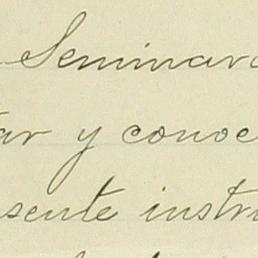 Seminar
ar y conoc
sente instru